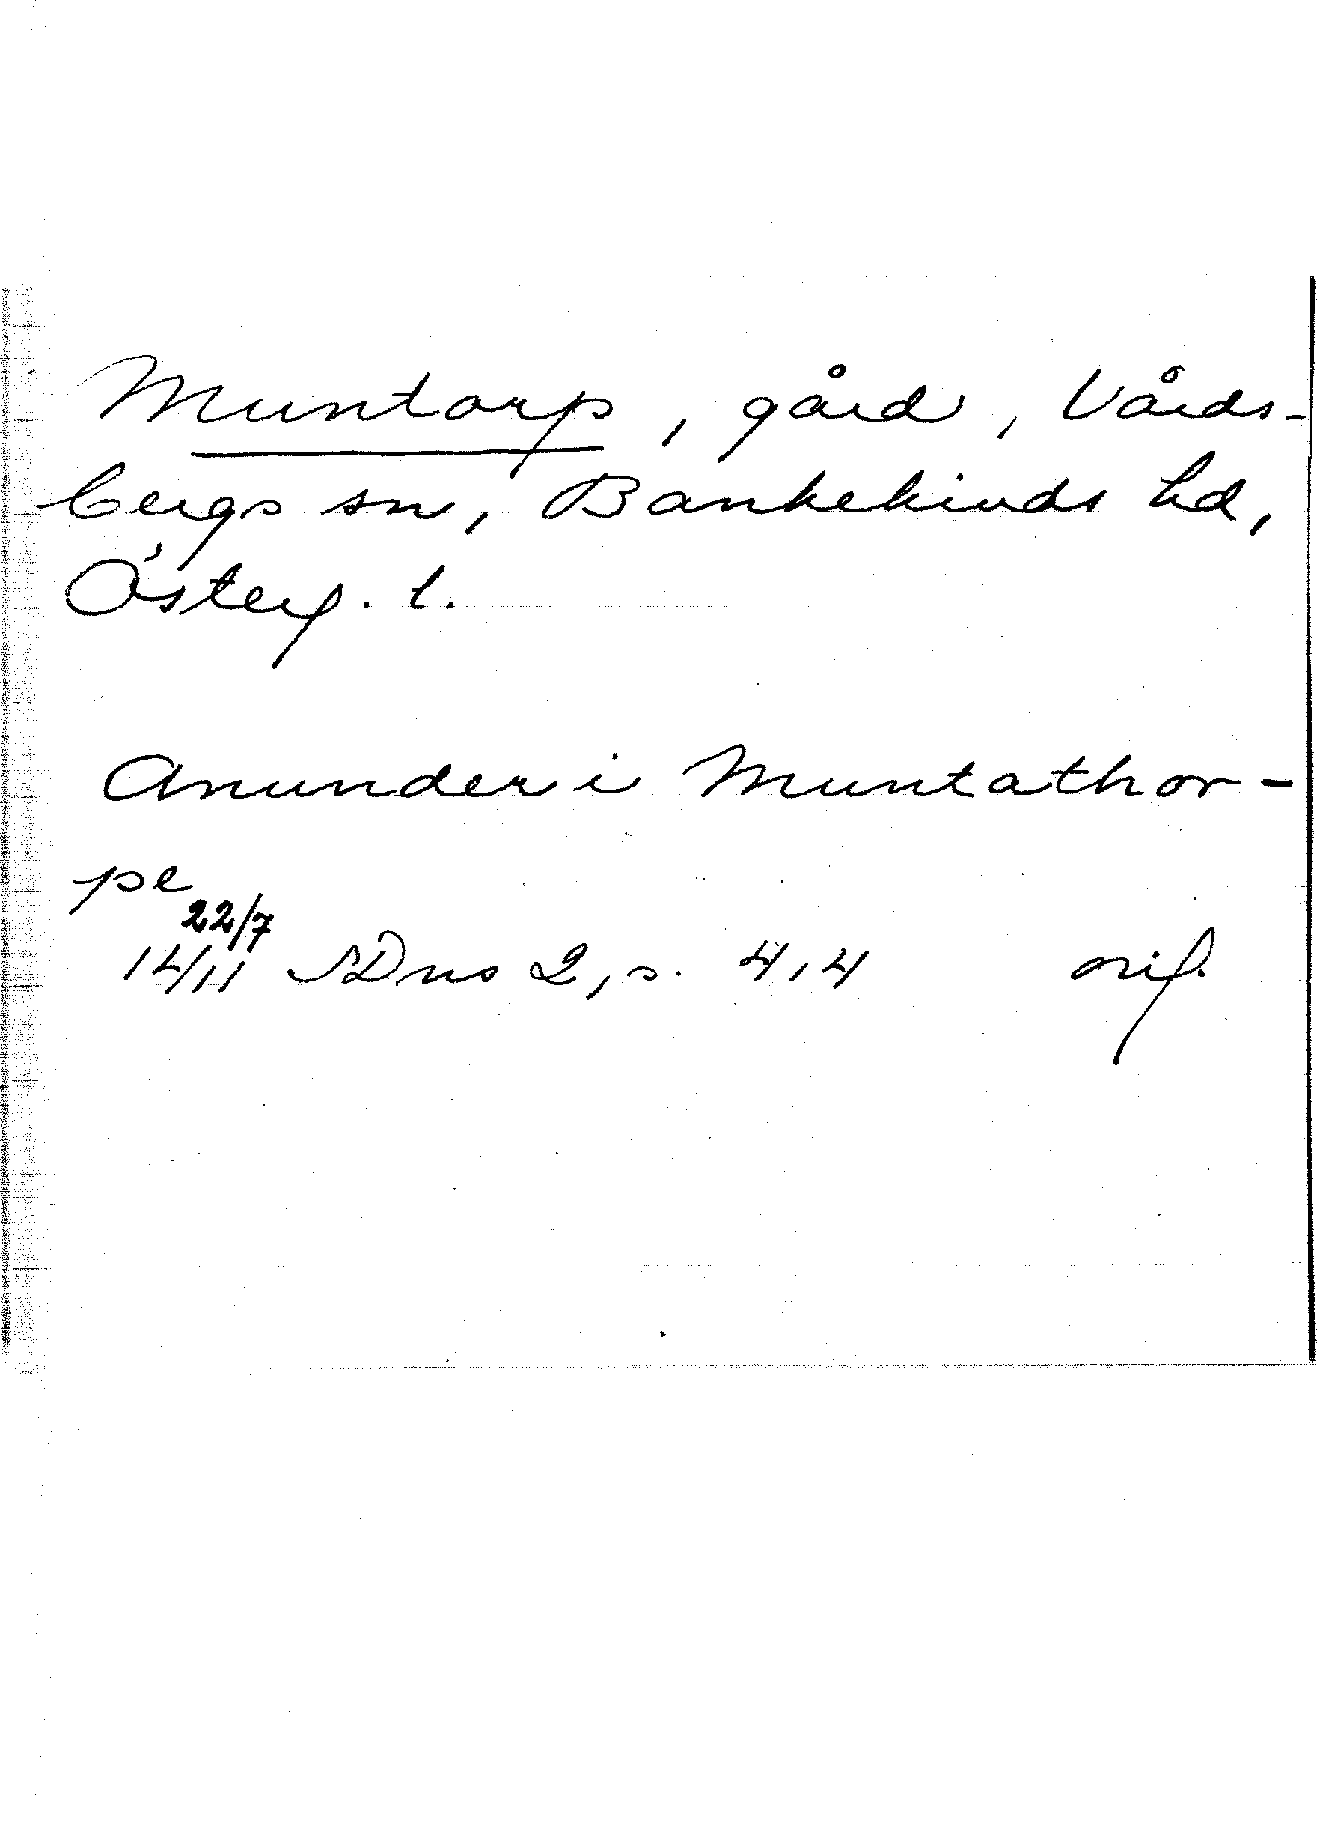 Muntorp, gård, Vårds-
bergs sn, Bankekinds hd,
Österg. l.
Anunder i Muntathor-
pe
22/7
1411 SDns 2, s. 4,4 orig.